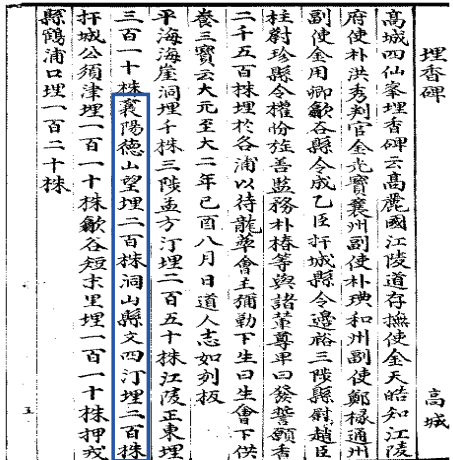 埋香碑 高城
高城四仙峯埋香碑云高麗國江陵道存撫使金天皓知江陵
府使朴洪秀判官金光寶襄州副使朴琠和州副使鄭椽通州
副使金用卿歙谷縣令成乙臣扞城縣令邊裕三陟縣尉趙臣
柱尉珍縣令權怡旌善監務朴椿等與諸尊卑曰發誓願香
二千五百株埋於各浦以待龍華會主彌勒下生曰生會下供
養三寶云大元至大二年己酉八月日道人志如刻
平海海崖洞埋千株三陟孟方汀埋二百五十株江陵正東埋
三百一十株襄陽德山望埋二百株洞山縣文四汀埋二百株
扞城公須津埋一百一十株歙谷短末里埋一百一十株押戎
縣鶴浦口埋一百二十株
五